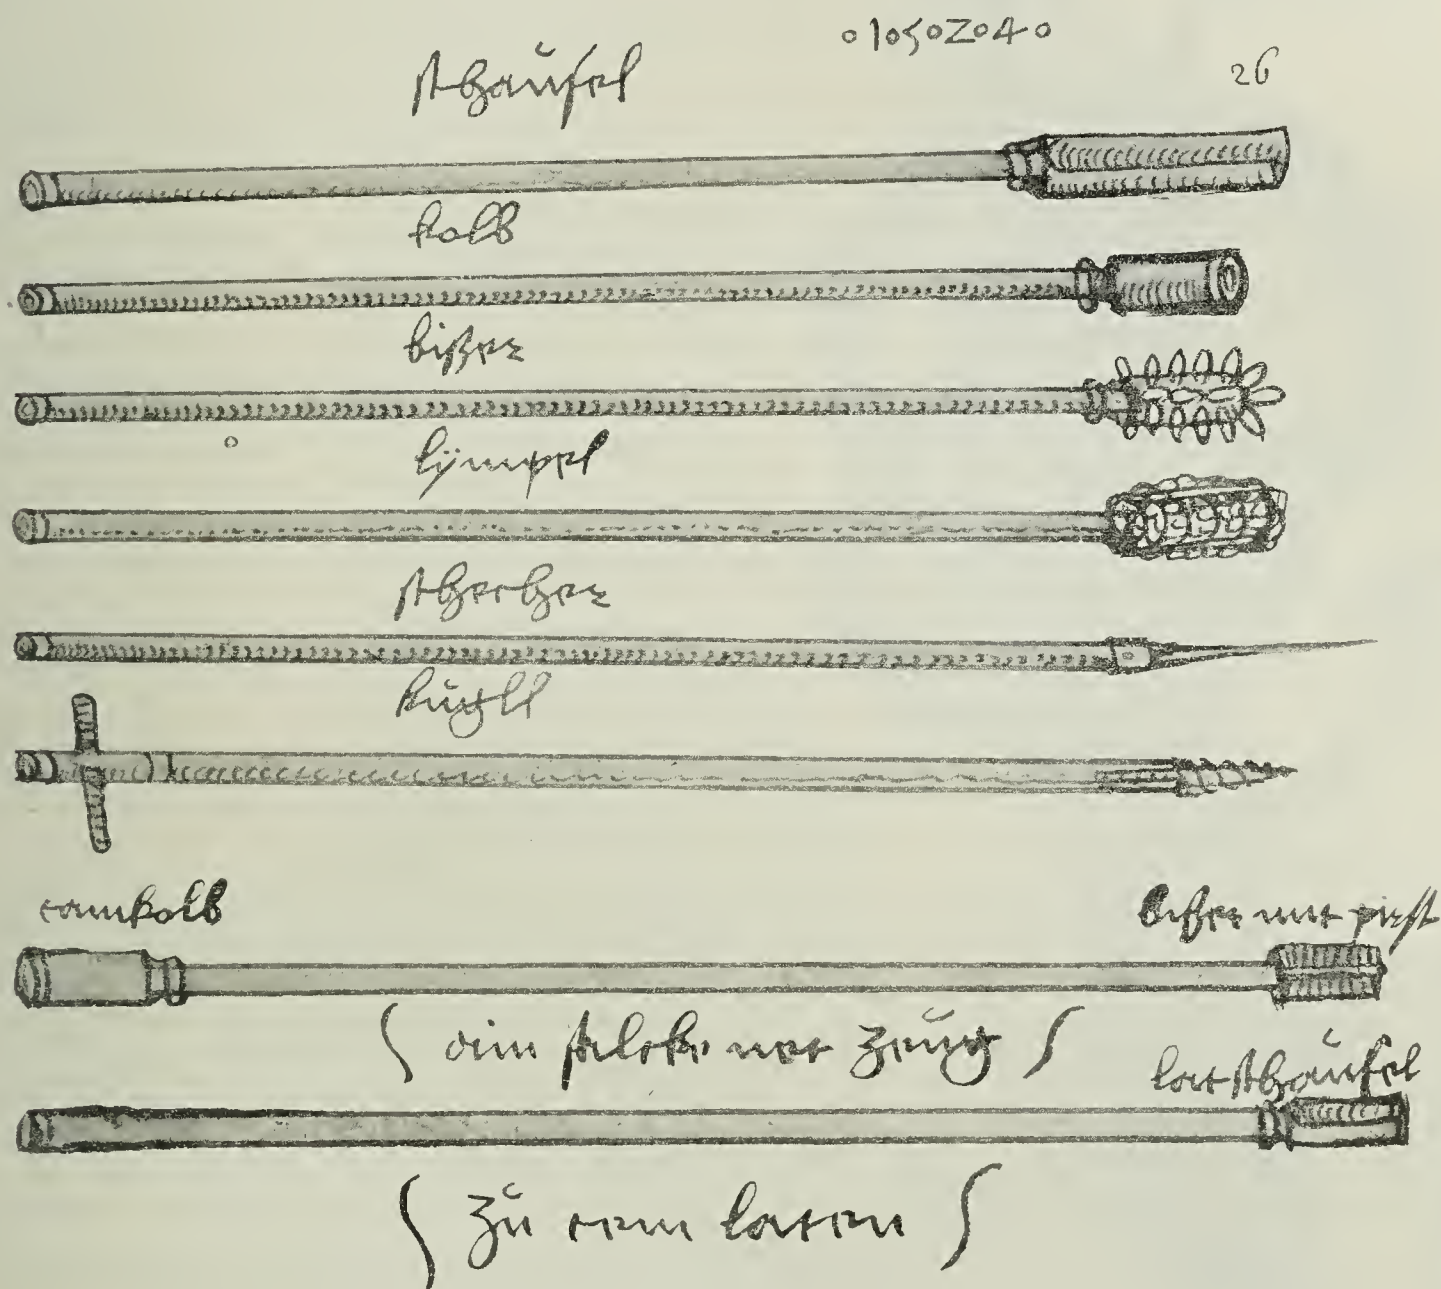 o1o5o2o4o
26
schaufel
kolb
bißer
lympel
stecher
kugll
ramkolb
bißer mit pirst
ain slechter zeug
latschaufel
zu dem laten